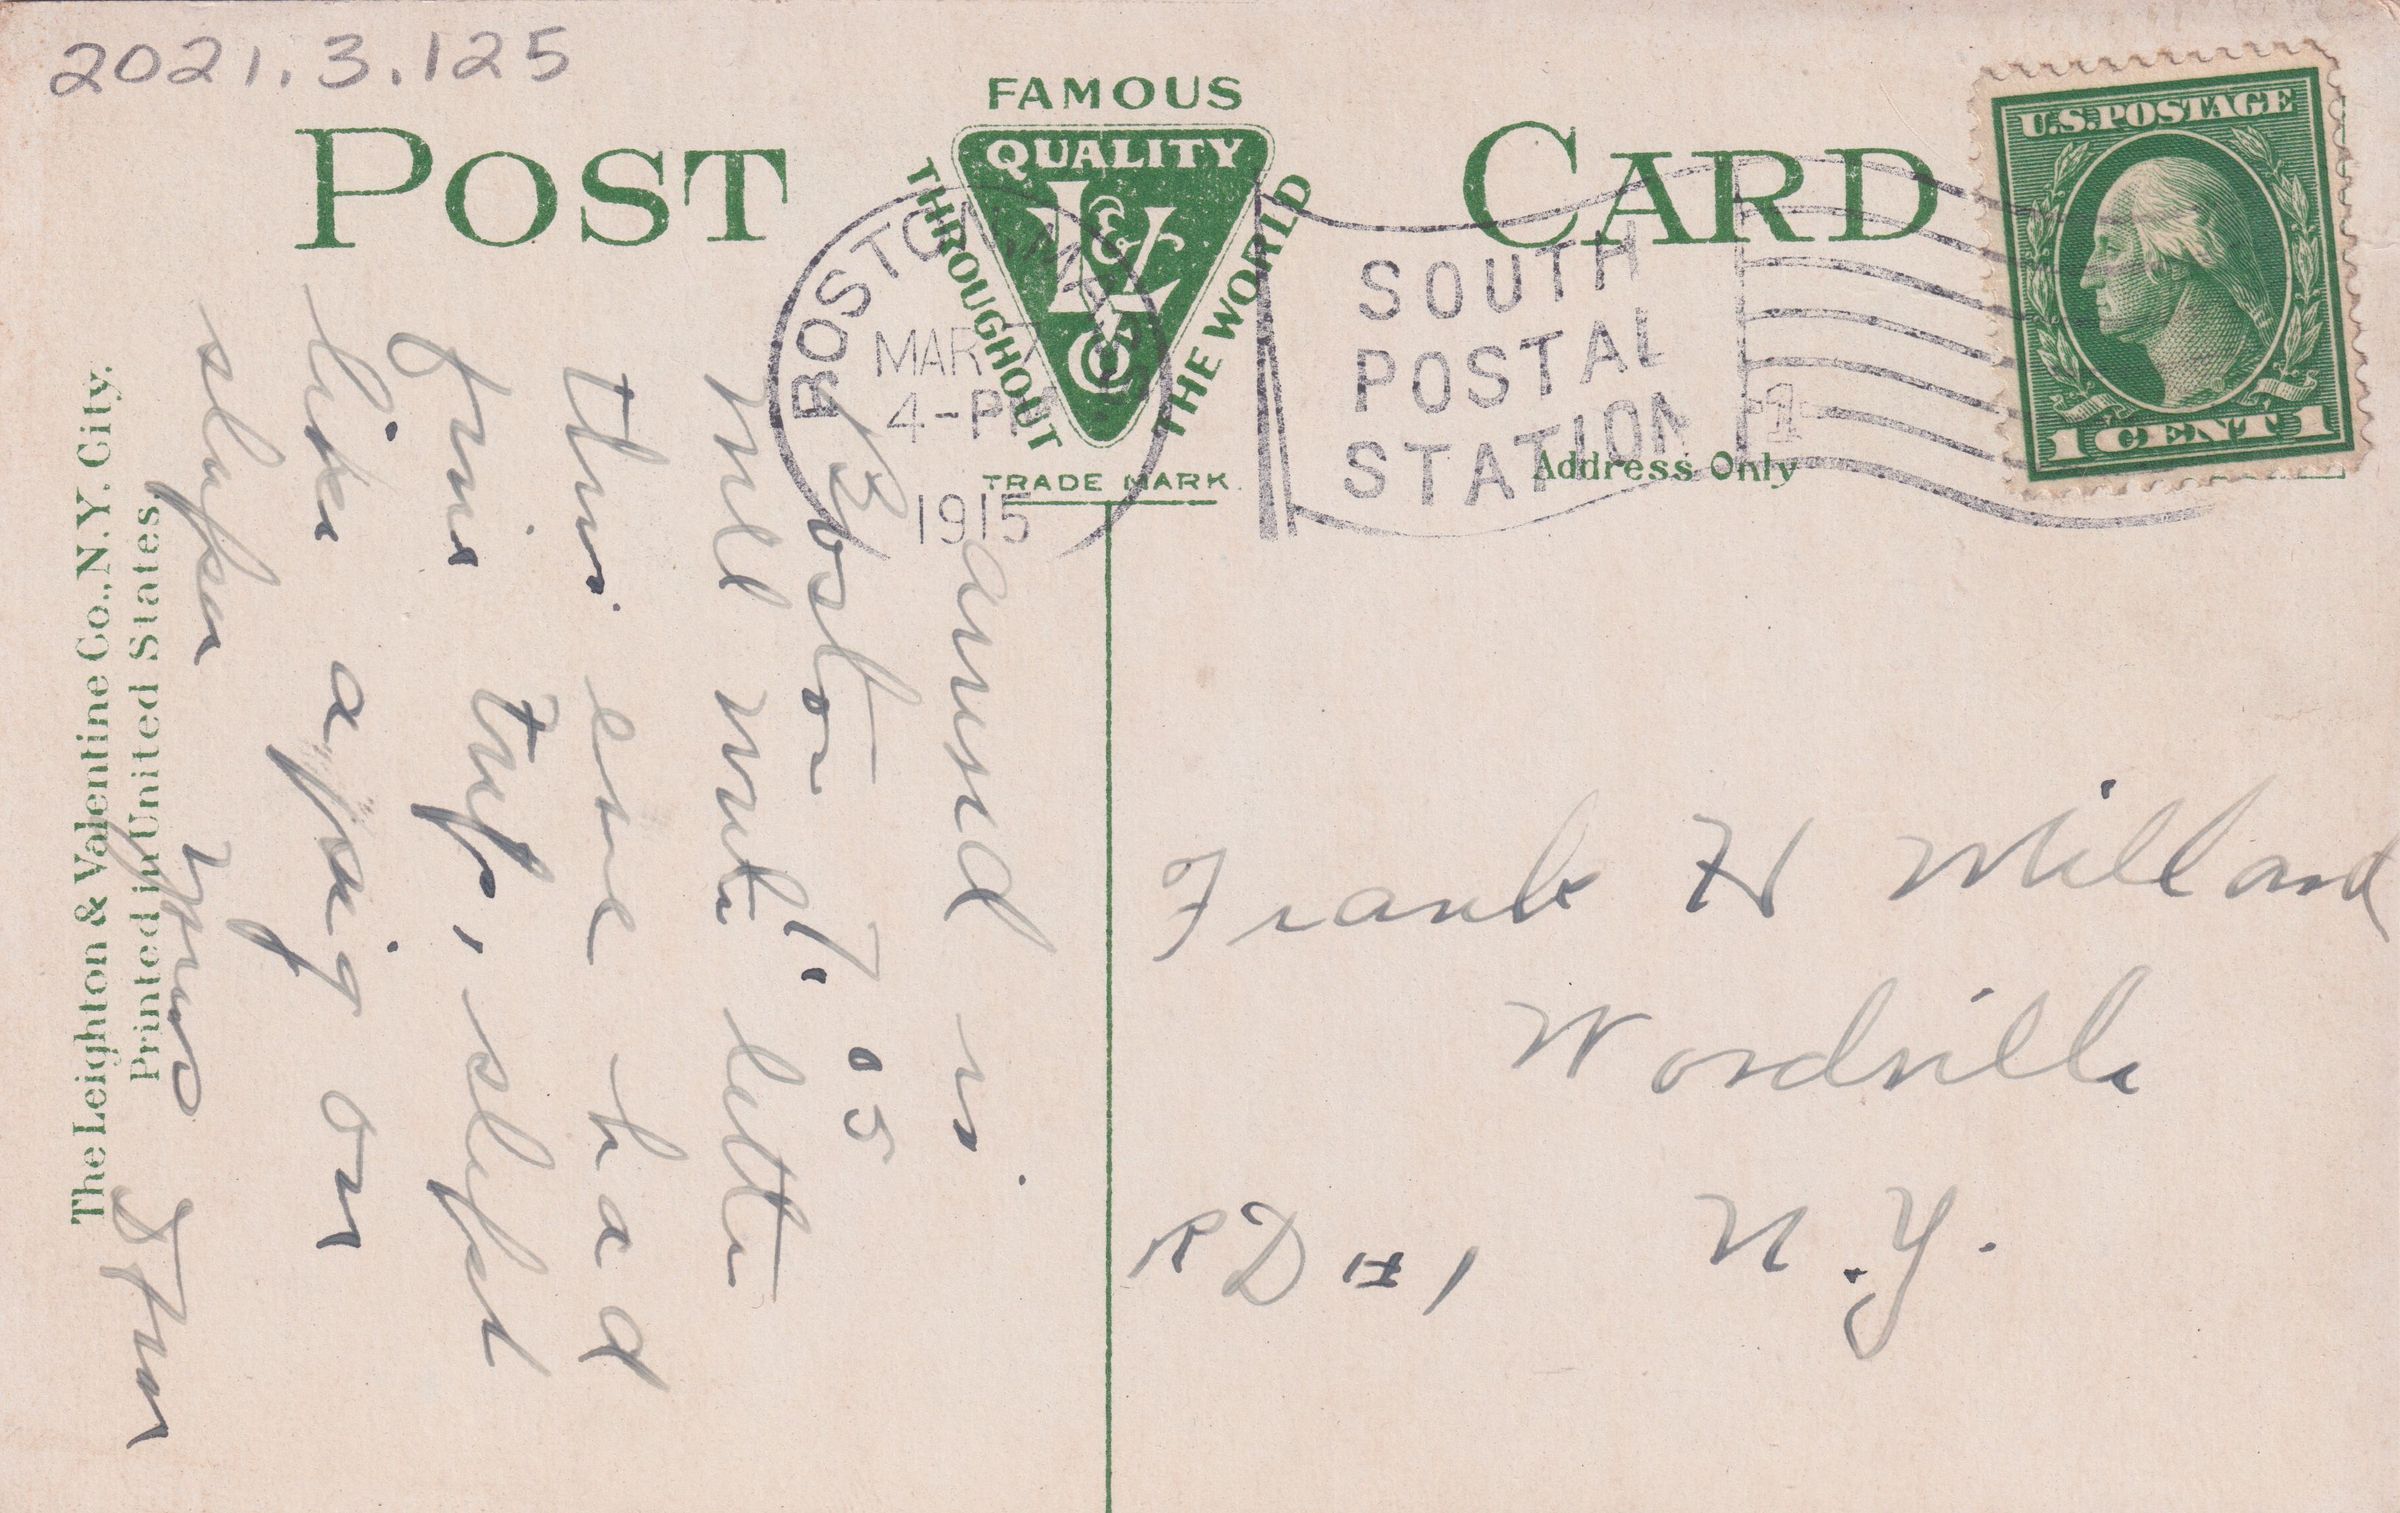 2021.3.125
POST CARD
FAMOUS
QUALITY
THROUGHOUT THE WORLD
V & Co
TRADE MARK.
BOSTON
MAR 7
4-PM
1915
SOUTH
POSTAL
STATION
1
U.S.POSTAGE
1 CENT 1
Address Only
arived in
Boston 7.05
will write letter
this eve had
fine trip, slept
like a pig on
sleeper
yours
The Leighton & Valentine Co., N.Y. City.
Printed in United States.
Frank H Millard
Woodville
N.Y.
RD #1